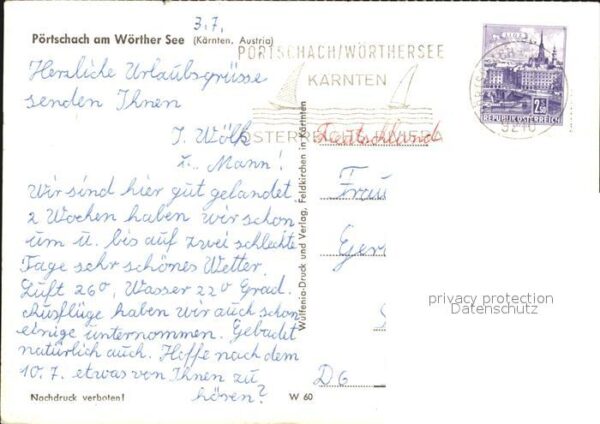 3.7.
Pörtschach am Wörther See (Kärnten, Austria)
PÖRTSCHACH/WÖRTHERSEE
KÄRNTEN
2.50
REPUBLIK ÖSTERREICH
9210
Herzliche Urlaubsgrüsse
senden Ihnen
I. Wölk
Mann!
Deutschland
Frau
Wir sind hier gut gelandet.
2 Wochen haben wir schon
um u. bis auf zwei schlechte
Tage sehr schönes Wetter.
Luft 26°, Wasser 22° Grad.
Ausflüge haben wir auch schon
einige unternommen. Gebadet
natürlich auch. Hoffe nach dem
10.7. etwas von Ihnen zu
hören?
Ger
D6
Wulfenia-Druck und Verlag, Feldkirchen in Kärnten
privacy protection
Datenschutz
Nachdruck verboten!
W 60